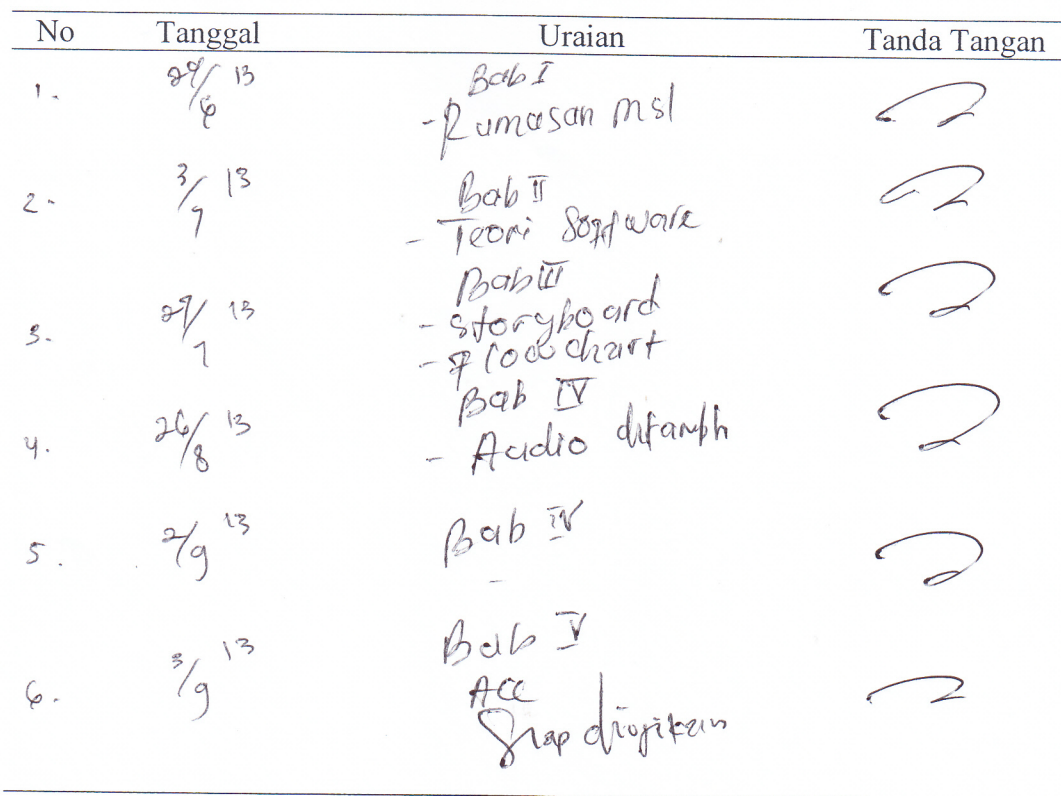 No Tanggal Uraian Tanda Tangan
1. 29/6 13 Bab I
- Rumusan msl
2. 3/7 13 Bab II
- Teori Software
Bab III
3. 29/7 13 - Storyboard
- Flowchart
Bab IV
4. 26/8 13 - Audio ditambh
5. 2/9 13 Bab IV
-
6. 3/9 13 Bab V
ACC
Siap diujikan